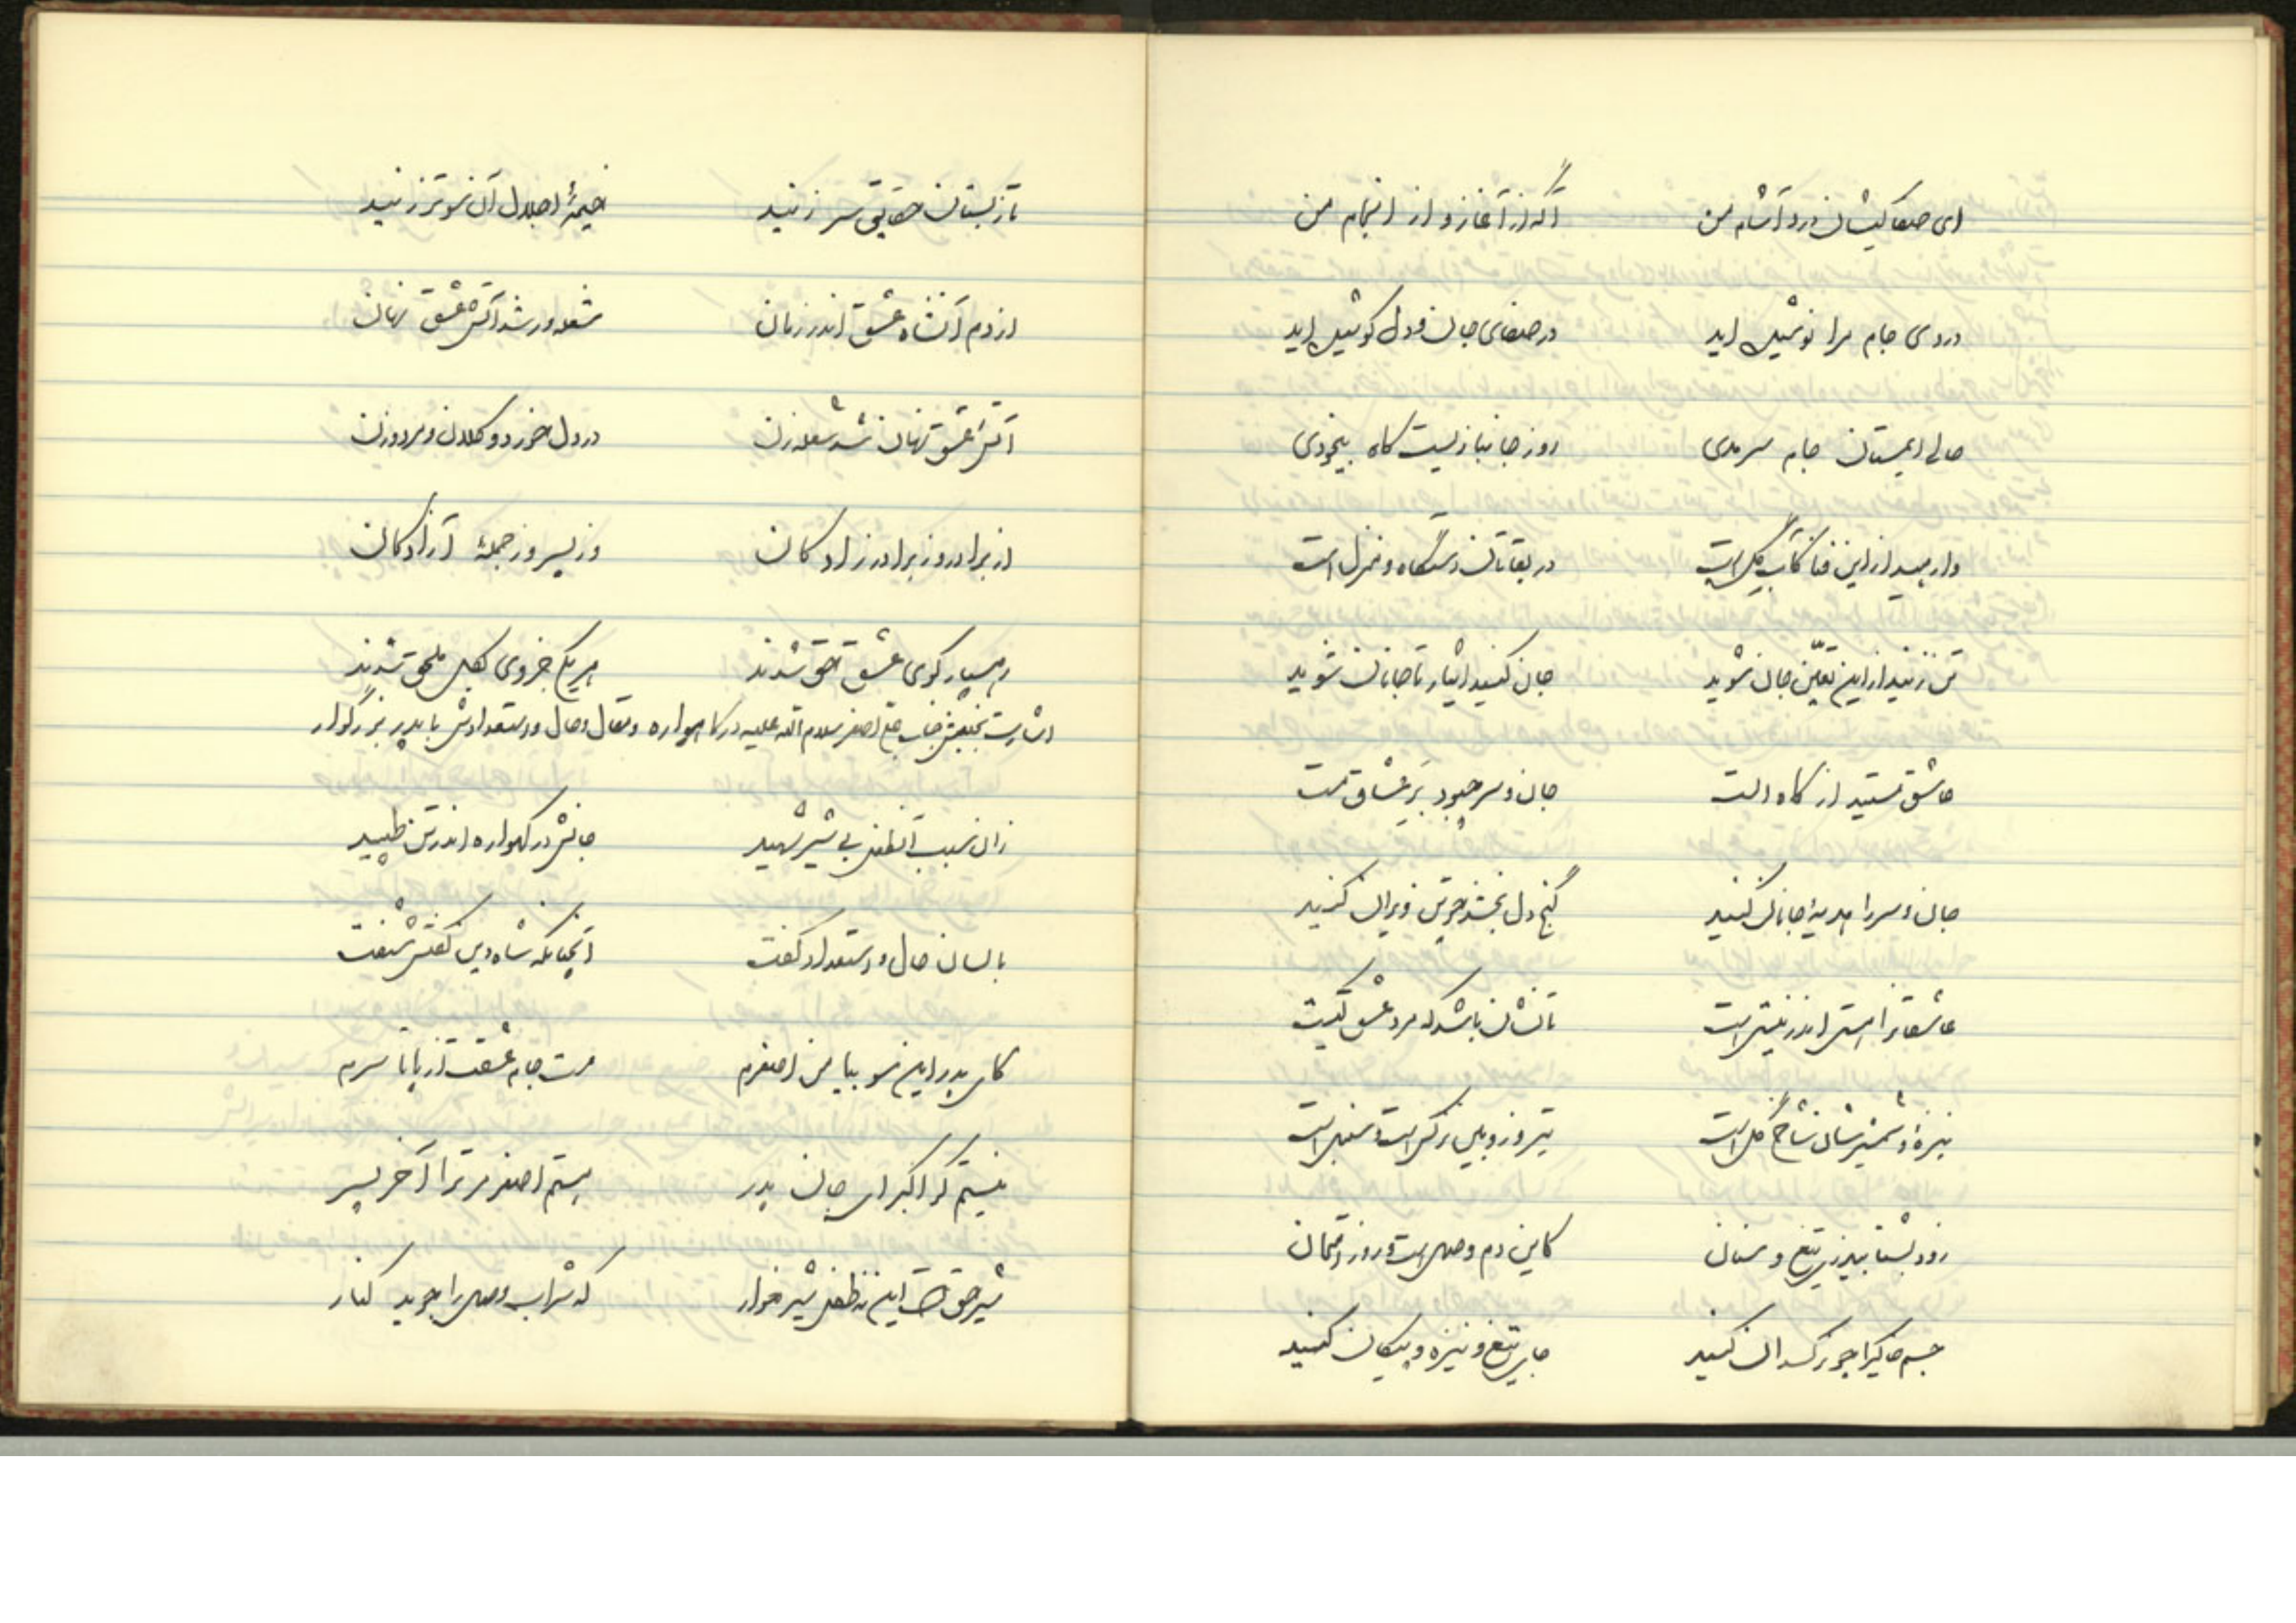 ای صفاکیشان درد آشام من آگه از آغاز و از انجام من
دردی جام مرا نوشیده‌اید در صفای جان و دل کوشیده‌اید
حالی ای مستان جام سرمدی روز جانبازیست گاه بیخودی
وارهید از این فنا کآب و گل است در بقاتان دستگاه و منزل است
تن زنید از این تعین جان شوید جان کنید ایثار تا جانان شوید
عاشق مستید از گاه الست جان و سر چبود بر عشاق مست
جان و سر را هدیهٔ جانان کنید گنج دل بخشد چو تن ویران کنید
عاشقانرا هستی اندر نیستی است تا نشان باشد که مرد عشق کیست
نیزه و شمشیرشان شاخ گل است تیر و زوبین نرگس است و سنبل است
زود بشتابید زی تیغ و سنان کاین دم وصل است و روز امتحان
جسم خاکیرا چو نرکسدان کنید جای تیغ و نیزه و پیکان کنید
تا ز بستان حقایق سر زنید خیمهٔ اجلال آن سوتر زنید
از دم آنشاه عشق اندر زمان شعله‌ور شد آتش عشق نهان
آتش عشق نهان شد شعله‌زن در دل خورد و کلان و مرد و زن
از برادر وز برادرزادگان وز پسر وز جملهٔ آزادگان
رهسپار کوی عشق حق شدند هر یکی جزوی بکل ملحق شدند
اشارت بجنبش جناب علی اصغر سلام الله علیه در گاهواره و مقال و حال و استعدادش با پدر بزرگوار
زان سبب آنطفل بی شیر شهید جانش در گهواره اندر تن طپید
با لسان حال و استعداد گفت آنچنانکه شاه دین گفتش شنفت
کای پدر این سو بیا من اصغرم مست جام عشقت از پا تا سرم
نیستم گر اکبر ای جان پدر هستم اصغر مر ترا آخر پسر
شیر حق است این نه طفل شیرخوار که شراب وصل را جوید کنار